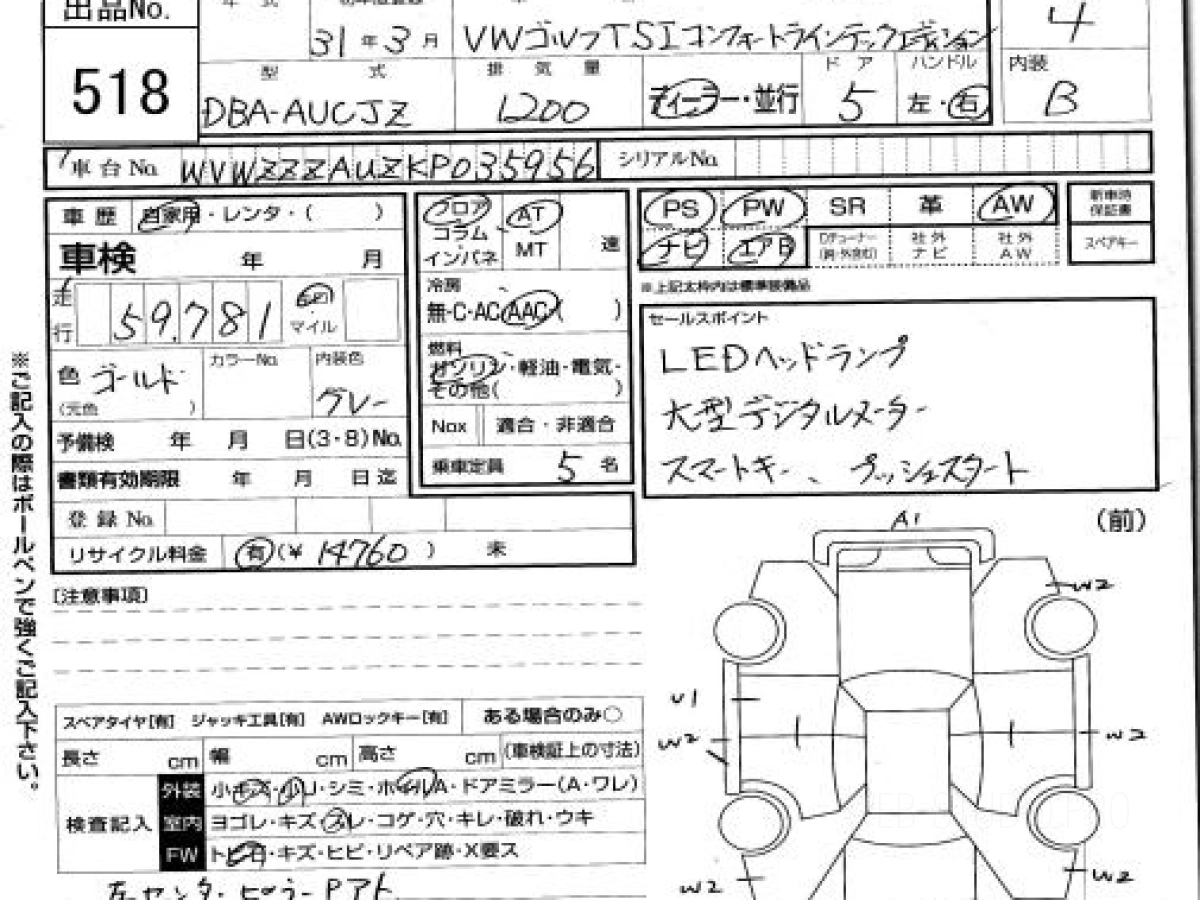 出品No.
518
年 式
31年3月
VWゴルフTSIコンフォートラインテックエディション
4
型 式
DBA-AUCJZ
排 気 量
1200
ディーラー・並行
ド ア
5
ハンドル
左・右
内装
B
車台No. WVWZZZAUZKP035956
シリアルNo.
車 歴 自家用・レンタ・( )
車検 年 月
走行 59,781 km マイル
色 ゴールド
(元色 )
カラーNo.
内装色
グレー
予備検 年 月 日(3・8)No.
書類有効期限 年 月 日迄
登 録 No.
リサイクル料金 有(¥ 14760 ) 未
フロア
コラム
インパネ
AT
MT
速
冷房
無・C・AC・AAC・( )
燃料
ガソリン・軽油・電気・
その他( )
Nox 適合・非適合
乗車定員 5 名
PS PW SR 革 AW
ナビ エアB
社外ナビ
社外AW
新車時保証書
スペアキー
※上記太枠内は標準装備品
セールスポイント
LEDヘッドランプ
大型デジタルメーター
スマートキー、プッシュスタート
※ご記入の際はボールペンで強くご記入下さい。
[注意事項]
(前)
A1
W2
U1
W2
W2
W2
W2
スペアタイヤ[有] ジャッキ工具[有] AWロックキー[有] ある場合のみ○
長さ cm 幅 cm 高さ cm (車検証上の寸法)
検査記入
外装 小キズ・小U・シミ・ホイルA・ドアミラー(A・ワレ)
室内 ヨゴレ・キズ・スレ・コゲ・穴・キレ・破れ・ウキ
FW トビ石・キズ・ヒビ・リペア跡・X要ス
左センターピラーPアト